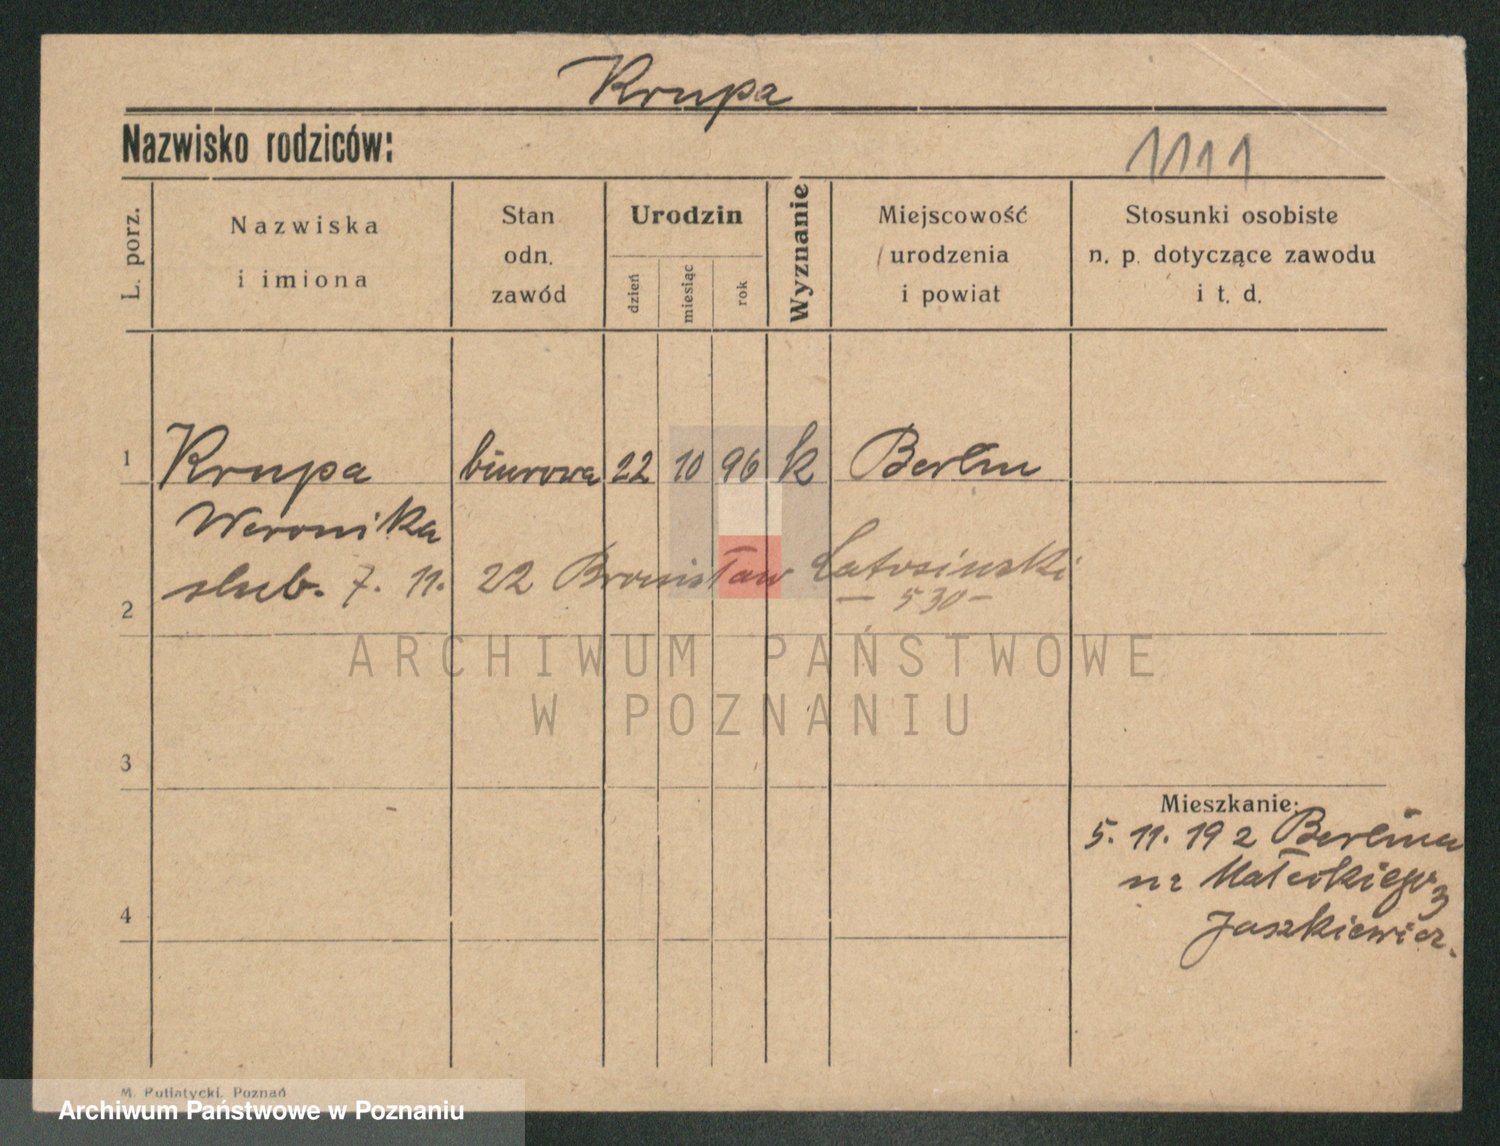 Krupa
Nazwisko rodziców:
1111
L. porz.
Nazwiska
i imiona
Stan
odn.
zawód
Urodzin
dzień
miesiąc
rok
Wyznanie
Miejscowość
urodzenia
i powiat
Stosunki osobiste
n. p. dotyczące zawodu
i t. d.
1 Krupa biurowa 22 10 96 k Berlin
Weronika
ślub. 7. 11. 22 Bronisław Latosiński
2 — 530 —
ARCHIWUM PAŃSTWOWE
W POZNANIU
3
Mieszkanie:
5. 11. 19 z Berlina
na Małeckiego 3
4 Jaszkiewicz.
M. Putiatycki, Poznań
Archiwum Państwowe w Poznaniu